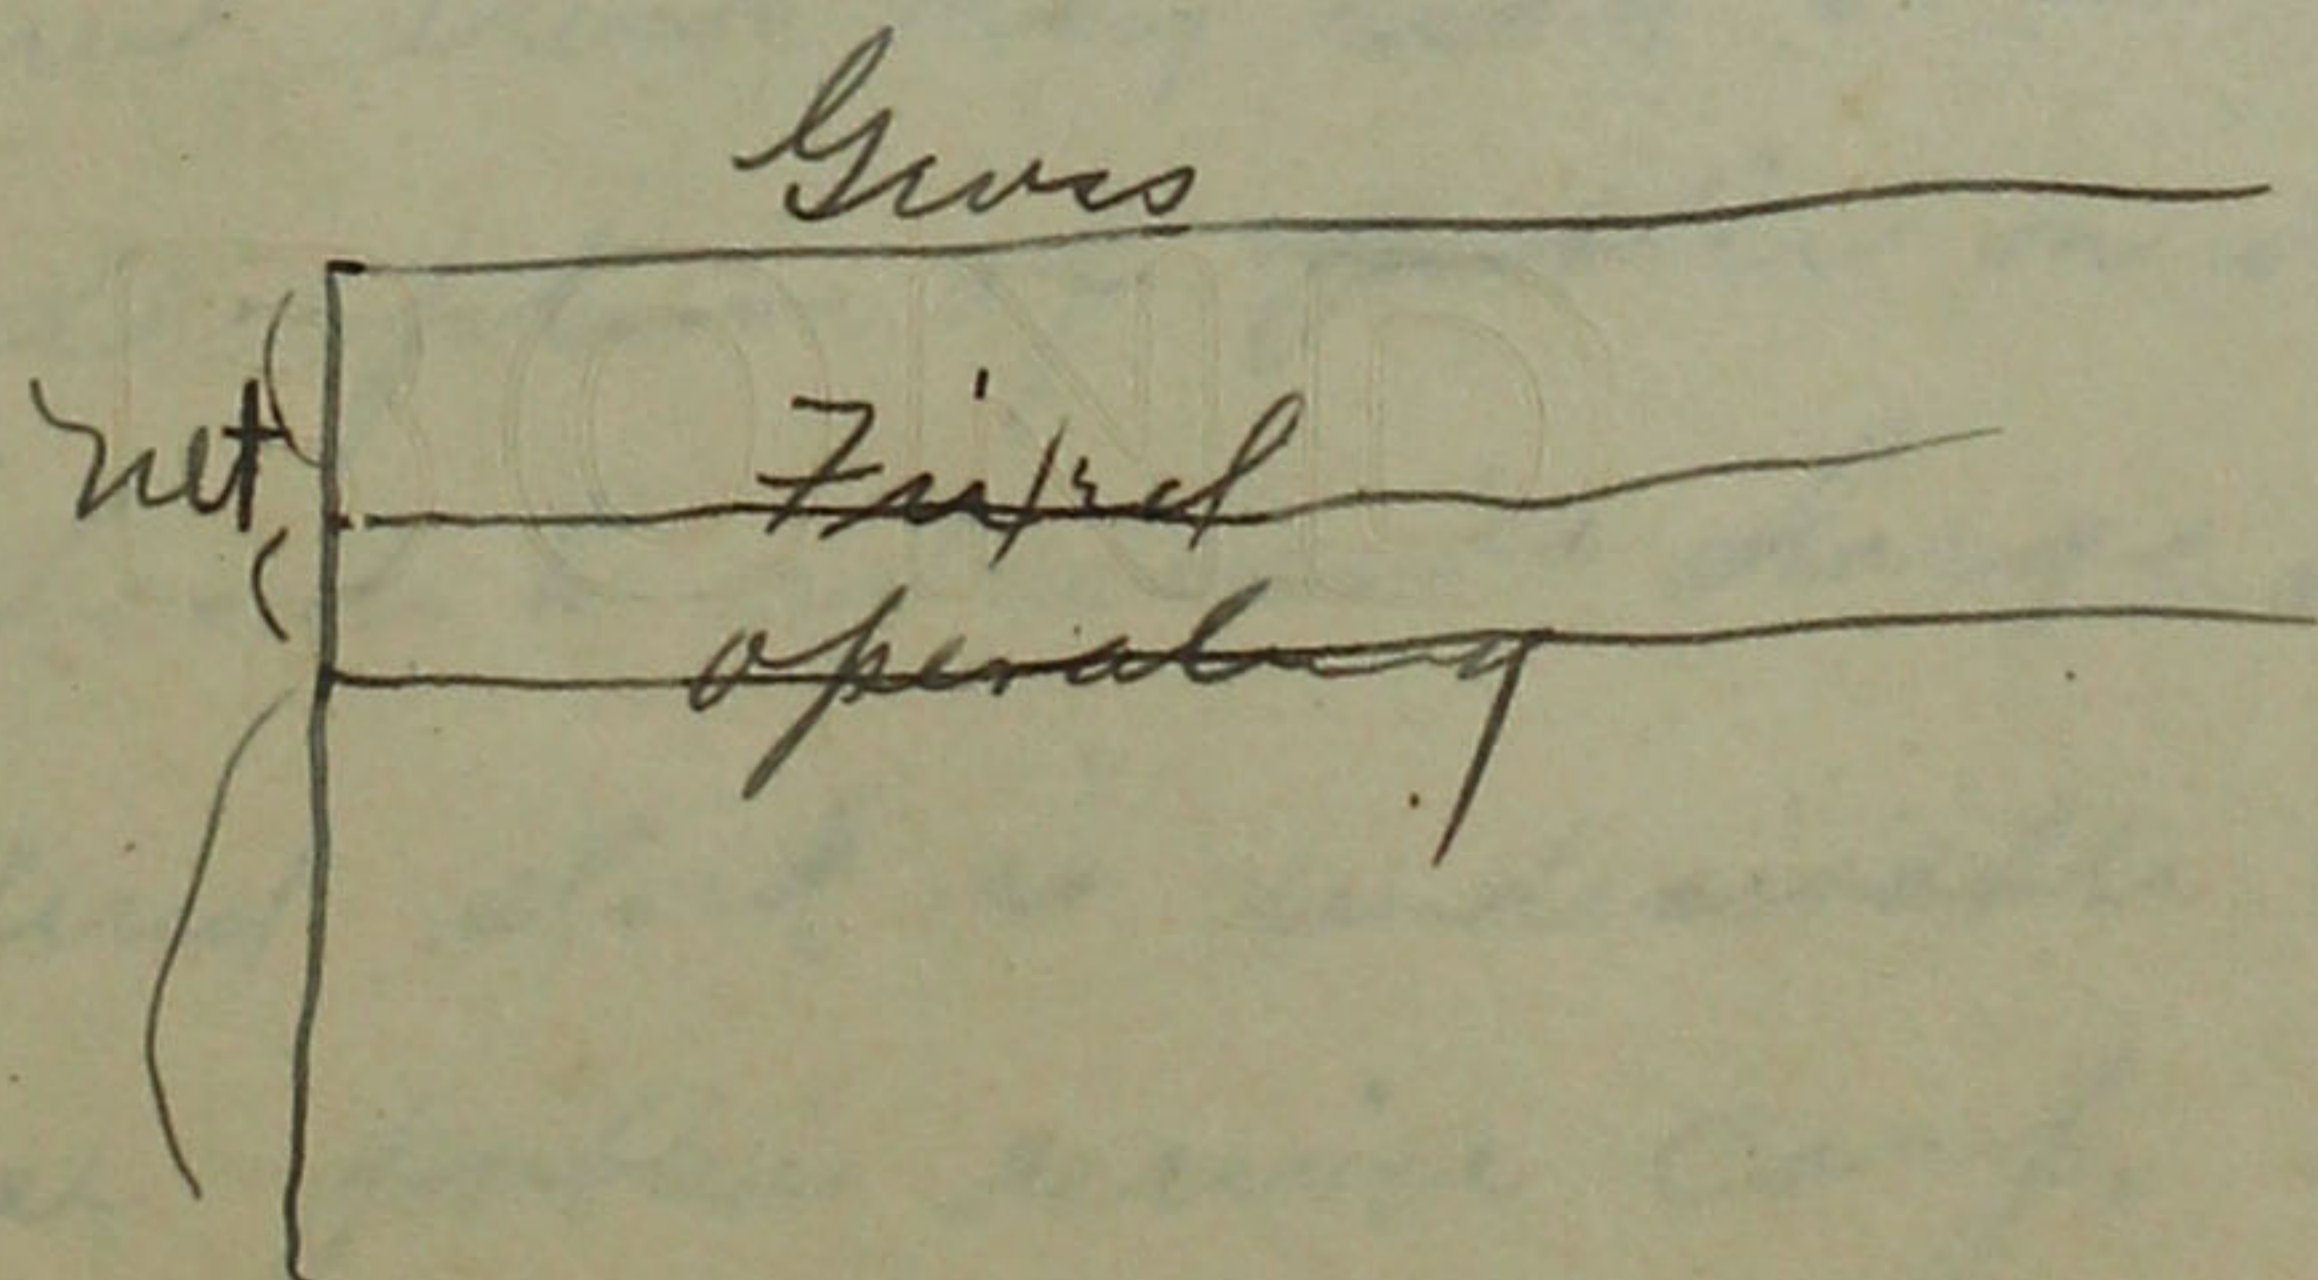 Gross
net
Fixed
operating
BOND